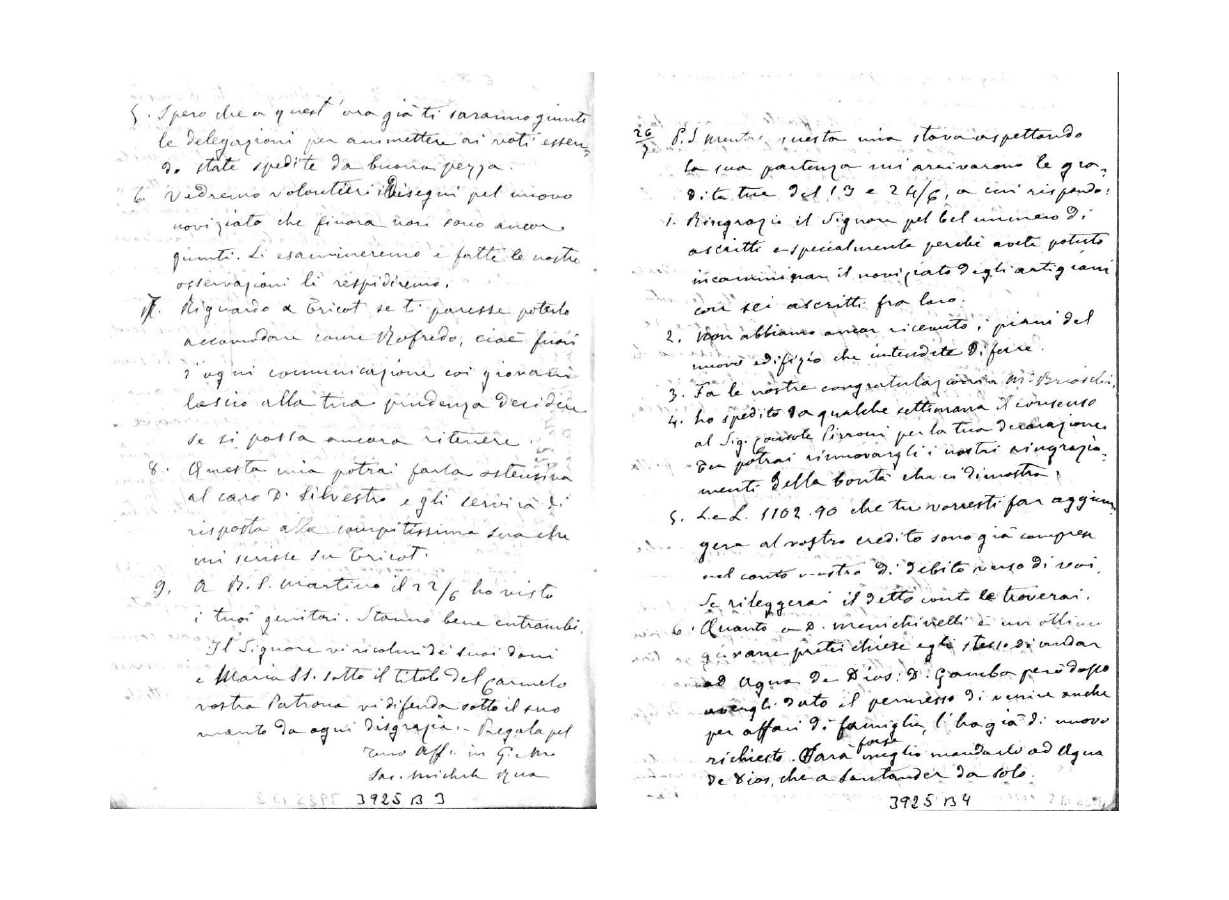 5. Spero che a quest'ora già ti saranno giunte
le delegazioni per ammettere ai voti essen=
do state spedite da buona pezza.
6. Vedremo volontieri i Disegni pel nuovo
noviziato che finora non sono ancor
giunti. Li esamineremo e fatte le nostre
osservazioni li respidiremo.
7. Riguardo a Tricot se ti paresse poterlo
accomodare come Rofredo, cioè fuori
d'ogni comunicazione coi giovani
lascio alla tua prudenza decidere
se si possa ancora ritenere.
8. Questa mia potrai farla ostensiva
al caro D. Silvestro e gli servirà di
risposta alla compitissima sua che
mi scrisse su Tricot.
9. A B. S. Martino il 22/6 ho visto
i tuoi genitori. Stanno bene entrambi.
Il Signore vi ricolmi de' suoi doni
e Maria SS. sotto il titolo del Carmelo
vostra Patrona vi difenda sotto il suo
manto da ogni disgrazia. Prega pel
tuo Aff. in G. e M.
Sac. Michele Rua
3925 B 3
26/7 P.S. Mentre questa mia stava aspettando
la sua partenza mi arrivarono le gra=
dite tue del 13 e 24/6, a cui rispondo:
1. Ringrazio il Signore pel bel numero di
ascritti e specialmente perchè avete potuto
incamminare il noviziato degli artigiani
con sei ascritti fra loro.
2. Non abbiamo ancor ricevuto i piani del
nuovo edifizio che intendete di fare.
3. Fa le nostre congratulazioni a M. Brioschi.
4. Ho spedito da qualche settimana il consenso
al Sig. Console Pirroni per la tua decorazione
Tu potrai rinnovargli i nostri ringrazia=
menti della bontà che ci dimostra.
5. Le L. 1102.90 che tu vorresti far aggiun=
gere al vostro credito sono già comprese
nel conto nostro di debito verso di voi.
Se rileggerai il detto conto le troverai.
6. Quanto a D. Menichinelli è un ottimo
giovane prete chiese egli stesso di andar
ad Agua de Dios. D. Gamba però dopo
avergli dato il permesso di venire anche
per affari di famiglia, l'ha già di nuovo
richiesto. Sarà forse meglio mandarlo ad Agua
de Dios, che a Santander da solo.
3925 B 4